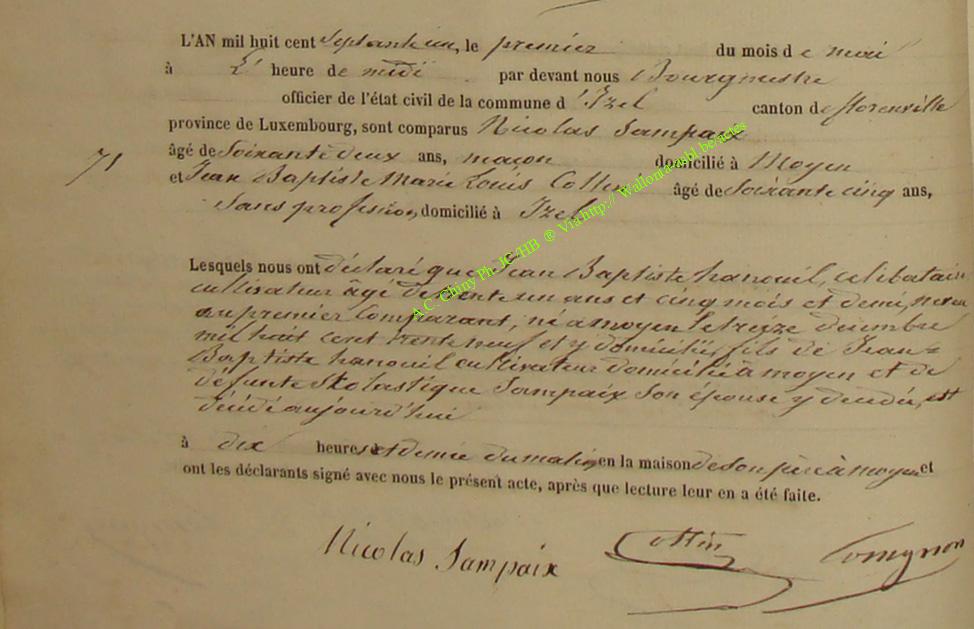 L'AN mil huit cent Septante un, le premier du mois d e mai
à L' heure de midi par devant nous Bourgmestre
officier de l'état civil de la commune d 'Izel canton de florenville
province de Luxembourg, sont comparus Nicolas Sampaix
71 âgé de Soixante deux ans, maçon domicilié à Moyen
et Jean Baptiste Marie Louis Cottin âgé de Soixante cinq ans,
Sans profession, domicilié à Izel
Lesquels nous ont déclaré que Jean Baptiste hanouil, celibataire
cultivateur âgé de trente un ans et cinq mois et demi, neveu
au premier Comparant, né à moyen le treize décembre
mil huit cent trente neuf et y domicilié, fils de Jean-
Baptiste hanouil cultivateur domicilié à moyen et de
défunte Skolastique Sampaix Son épouse y décédée, est
décédé aujourd'hui
à dix heures et demie du matin en la maison de Son père à moyen et
ont les déclarants signé avec nous le présent acte, après que lecture leur en a été faite.
Nicolas Sampaix Cottin
A.C. Chiny Ph JC-HB @ Via http:// Wallonia.asbl.be/actes